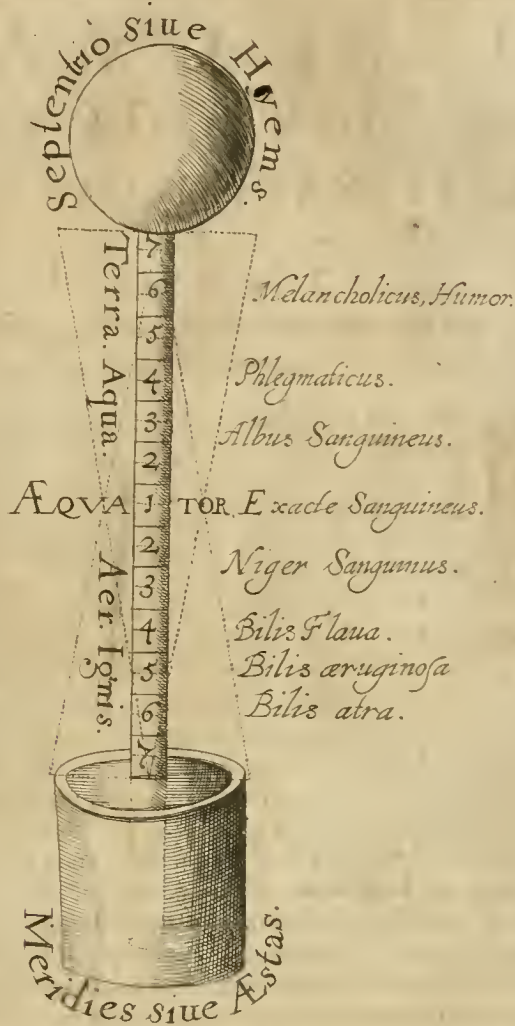 Septentrio siue Hyems.
Terra. Aqua.
7
6
5
4
3
2
ÆQVA 1 TOR.
2
3
4
5
6
7
Aer. Ignis.
Melancholicus, Humor.
Phlegmaticus.
Albus Sanguineus.
Exacte Sanguineus.
Niger Sanguinus.
Bilis Flaua.
Bilis æruginosa
Bilis atra.
Meridies siue Æstas.